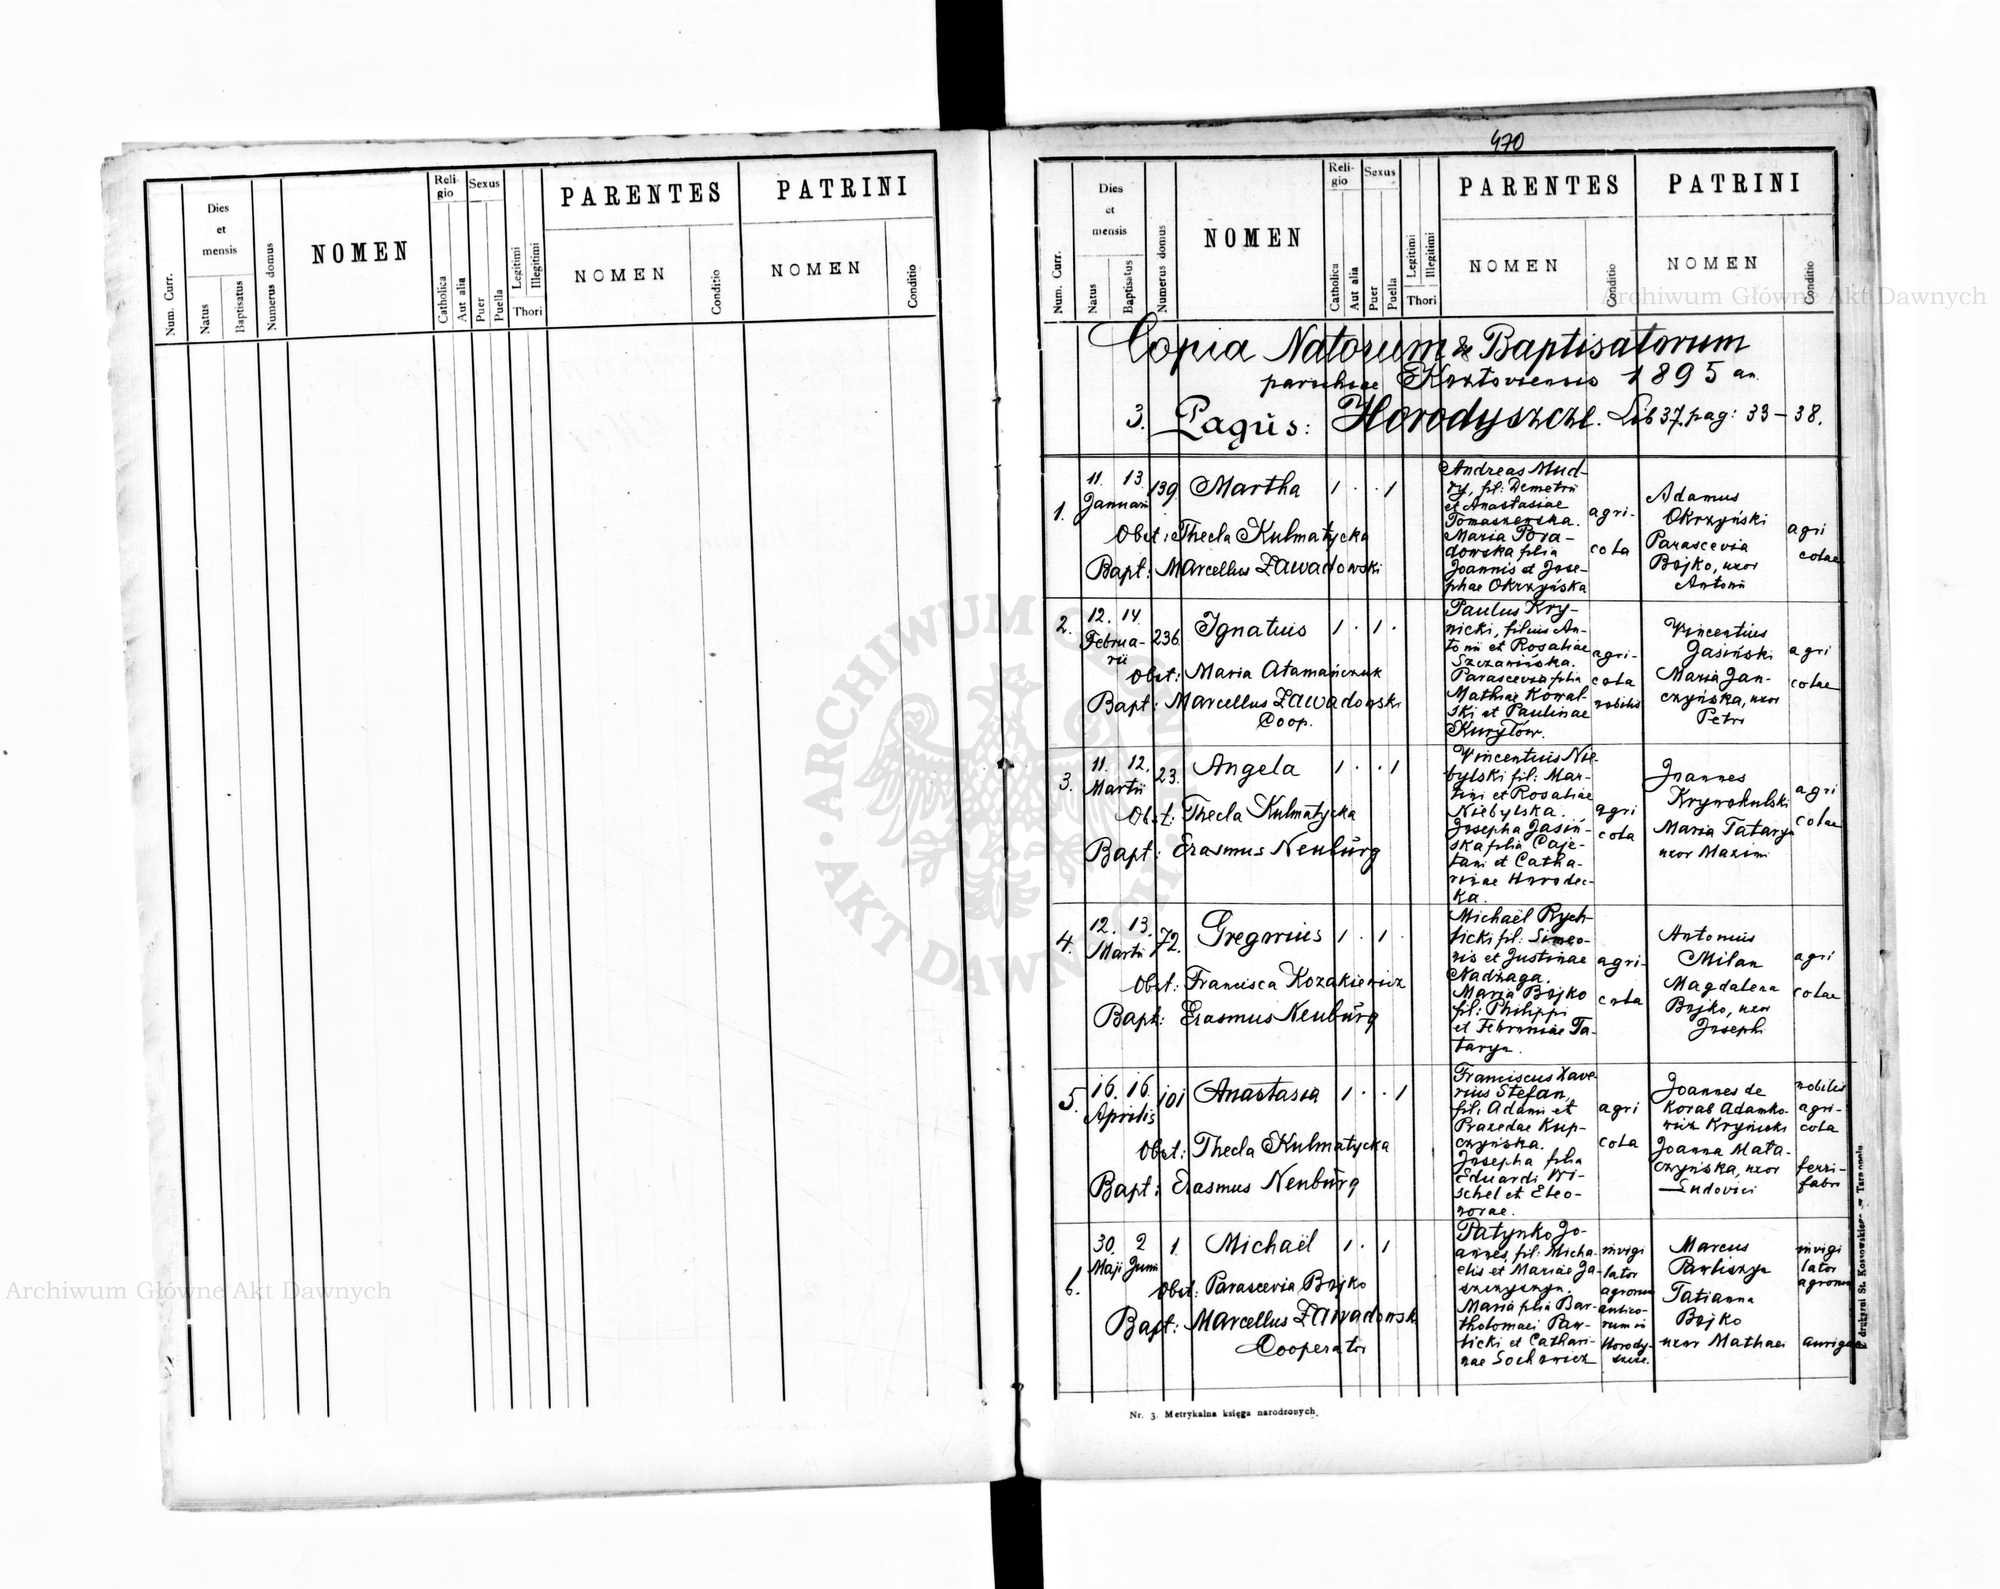 470
Num. Curr.
Dies
et
mensis
Natus
Baptisatus
Numerus domus
NOMEN
Reli-
gio
Catholica
Aut alia
Sexus
Puer
Puella
Legitimi
Illegitimi
Thori
PARENTES
NOMEN
Conditio
PATRINI
NOMEN
Conditio
Num. Curr.
Dies
et
mensis
Natus
Baptisatus
Numerus domus
NOMEN
Reli-
gio
Catholica
Aut alia
Sexus
Puer
Puella
Legitimi
Illegitimi
Thori
PARENTES
NOMEN
Conditio
PATRINI
NOMEN
Conditio
Archiwum Główne Akt Dawnych
Copia Natorum & Baptisatorum
parochiae 1895 an.
3. Pagus: Horodyszcze. Lib 37. pag: 33-38.
1.
11. 13.
Januarii
139
Martha
1 . . 1
Obst: Thecla Kulmatycka
Bapt: Marcellus Zawadowski
Andreas Mud-
ry, fil: Demetrii
et Anastasiae
Tomaszewska.
Maria Pora-
dowska filia
Joannis et Jose-
phae Okrzyńska
agri-
cola
Adamus
Okrzyński
Parascevia
Bojko, uxor
Antonii
agri
colae
2.
12. 14.
Februa-
rii
236
Ignatius
1 . 1 .
Obst: Maria Atamańczuk
Bapt: Marcellus Zawadowski
Coop.
Paulus Kry-
nicki, filius An-
tonii et Rosaliae
Szczawińska.
Parascevia filia
Mathiae Kowal-
ski et Paulinae
Kuryłów.
agri-
cola
nobilis
Vincentius
Jasiński
Maria Jan-
czyńska, uxor
Petri
agri
colae
3.
11. 12.
Martii
23.
Angela
1 . . 1
Obst: Thecla Kulmatycka
Bapt: Erasmus Neuburg
Vincentius Nie-
bylski fil: Mar-
tini et Rosaliae
Niebylska.
Josepha Jasiń-
ska filia Caje-
tani et Catha-
rinae Horodec-
ka.
agri
cola
Joannes
Krywokulski
Maria Tataryn
uxor Maximi
agri
colae
4.
12. 13.
Martii
72.
Gregorius
1 . 1 .
Obst: Francisca Kozakiewicz
Bapt: Erasmus Neuburg
Michaël Rych-
licki fil: Simeo-
nis et Justinae
Nadżaga.
Maria Bojko
fil: Philippi
et Febroniae Ta-
taryn.
agri-
cola
Antonius
Milan
Magdalena
Bojko, uxor
Josephi
agri
colae
5.
16. 16.
Aprilis
101
Anastasia
1 . . 1
Obst: Thecla Kulmatycka
Bapt: Erasmus Neuburg
Franciscus Xave-
rius Stefan,
fil: Adami et
Praxedae Kup-
czyńska.
Josepha filia
Eduardi Wi-
schel et Eleo-
norae.
agri
cola
Joannes de
Korab Adamko-
wicz Krynicki
Joanna Mata-
czyńska, uxor
Ludovici
nobilis
agri-
cola
ferri-
fabri
6.
30. 2
Maji Junii
1.
Michaël
1 . 1
Obst: Parascevia Bojko
Bapt: Marcellus Zawadowsk
Cooperator
Patynko Jo-
annes, fil: Micha-
elis et Mariae Ja-
szczyszyn.
Maria filia Bar-
tholomaei Paw-
licki et Cathari-
nae Sochowicz
invigi
lator
agrorum
Horody-
szcze.
Marcus
Pawliszyn
Tatianna
Bojko
uxor Mathaei
invigi
lator
agrorum
auriga
Nr. 3. Metrykalna księga narodzonych.
Z drukarni St. Kossowskiego w Tarnopolu
ARCHIWUM GŁÓWNE AKT DAWNYCH
Archiwum Główne Akt Dawnych